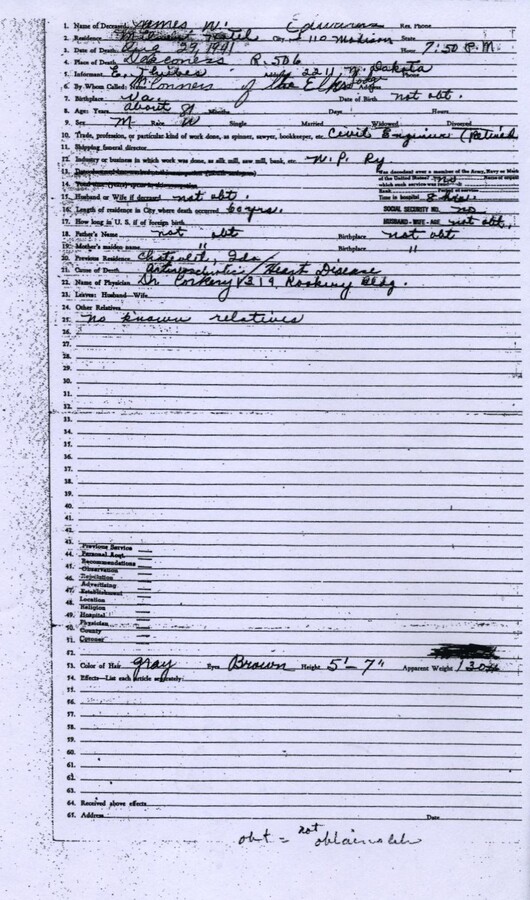 1. Name of Deceased James W. Edwards Res. Phone
2. Residence Hotel City S 110 Madison State
3. Date of Death Aug 29, 1941 Hour 7:50 P.M.
4. Place of Death Deaconess R. 506
5. Informant E. Address 2211 N. Dakota Phone
6. By Whom Called: Name McConners of the Elks Lodge Address
7. Birthplace Va. Date of Birth not obt.
8. Age: Years about 81 Months Days Hours
9. Sex M Race W Single Married Widowed Divorced
10. Trade, profession, or particular kind of work done, as spinner, sawyer, bookkeeper, etc. Civil Engineer (Retired
11. Shipping funeral director
12. Industry or business in which work was done, as silk mill, saw mill, bank, etc. N. P. Ry
13. Was deceased ever a member of the Army, Navy or
of the United States? No
14.
Time in hospital 8 hrs.
15. Husband or Wife if deceased not obt.
16. Length of residence in City where death occurred 60 yrs. SOCIAL SECURITY NO. no
17. How long in U. S. if of foreign birth. HUSBAND - WIFE - AGE not obt.
18. Father's Name not obt Birthplace not obt
19. Mother's maiden name " Birthplace "
20. Previous Residence Ida
21. Cause of Death Arteriosclerotic / Heart Disease
22. Name of Physician Dr. Corkery 319 Rookery Bldg.
23. Leaves: Husband—Wife
24. Other Relatives
25. no known relatives
26.
27.
28.
29.
30.
31.
32.
33.
34.
35.
36.
37.
38.
39.
40.
41.
42.
43. Previous Service
44. Personal Acqt.
45. Recommendations
Observation
46. Reputation
Advertising
47. Establishment
48. Location
Religion
49. Hospital
50. Physician
County
51. Coroner
52.
53. Color of Hair gray Eyes Brown Height 5'-7" Apparent Weight 130#
54. Effects—List each article separately:
55.
56.
57.
58.
59.
60.
61.
62.
63.
64. Received above effects
65. Address Date
obt = not obtainable